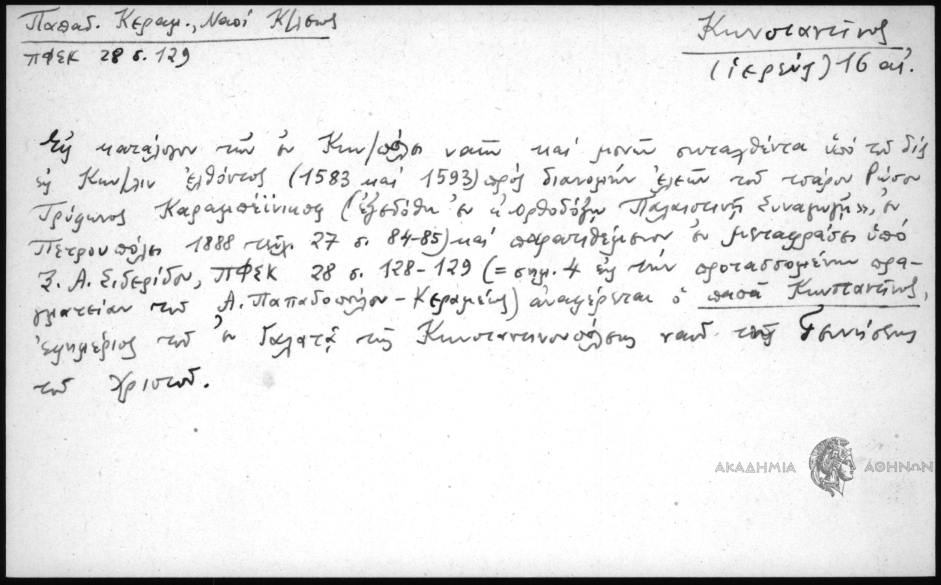 Παπαδ. Κεραμ., Ναοί Κ/λεως
ΠΦΕΚ 28 σ. 129
Κωνσταντῖνος
(ἱερεύς) 16 αἰ.
Εἰς κατάλογον τῶν ἐν Κων/πόλει ναῶν καί μονῶν συνταχθέντα ὑπό τοῦ δίς
εἰς Κων/λιν ἐλθόντος (1583 καί 1593) πρός διανομήν ἐλεῶν τοῦ τσάρου Ρώσου
Τρύφωνος Καραμπέϊνικωφ (ἐξεδόθη ἐν «Ὀρθοδόξῳ Παλαιστινῇ Συναγωγῇ», ἐν
Πετρουπόλει 1888 τεῦχ. 27 σ. 84-85) καί παρατιθέμενον ἐν μεταφράσει ὑπό
Ξ. Α. Σιδερίδου, ΠΦΕΚ 28 σ. 128-129 (= σημ. 4 εἰς τήν προτασσομένην πρα-
γματείαν τοῦ Α. Παπαδοπούλου-Κεραμέως) ἀναφέρεται ὁ παπᾶ Κωνσταντῖνος,
ἐφημέριος τοῦ ἐν Γαλατᾷ τῆς Κωνσταντινουπόλεως ναοῦ τῆς Γεννήσεως
τοῦ Χριστοῦ.
ΑΚΑΔΗΜΙΑ ΑΘΗΝΩΝ